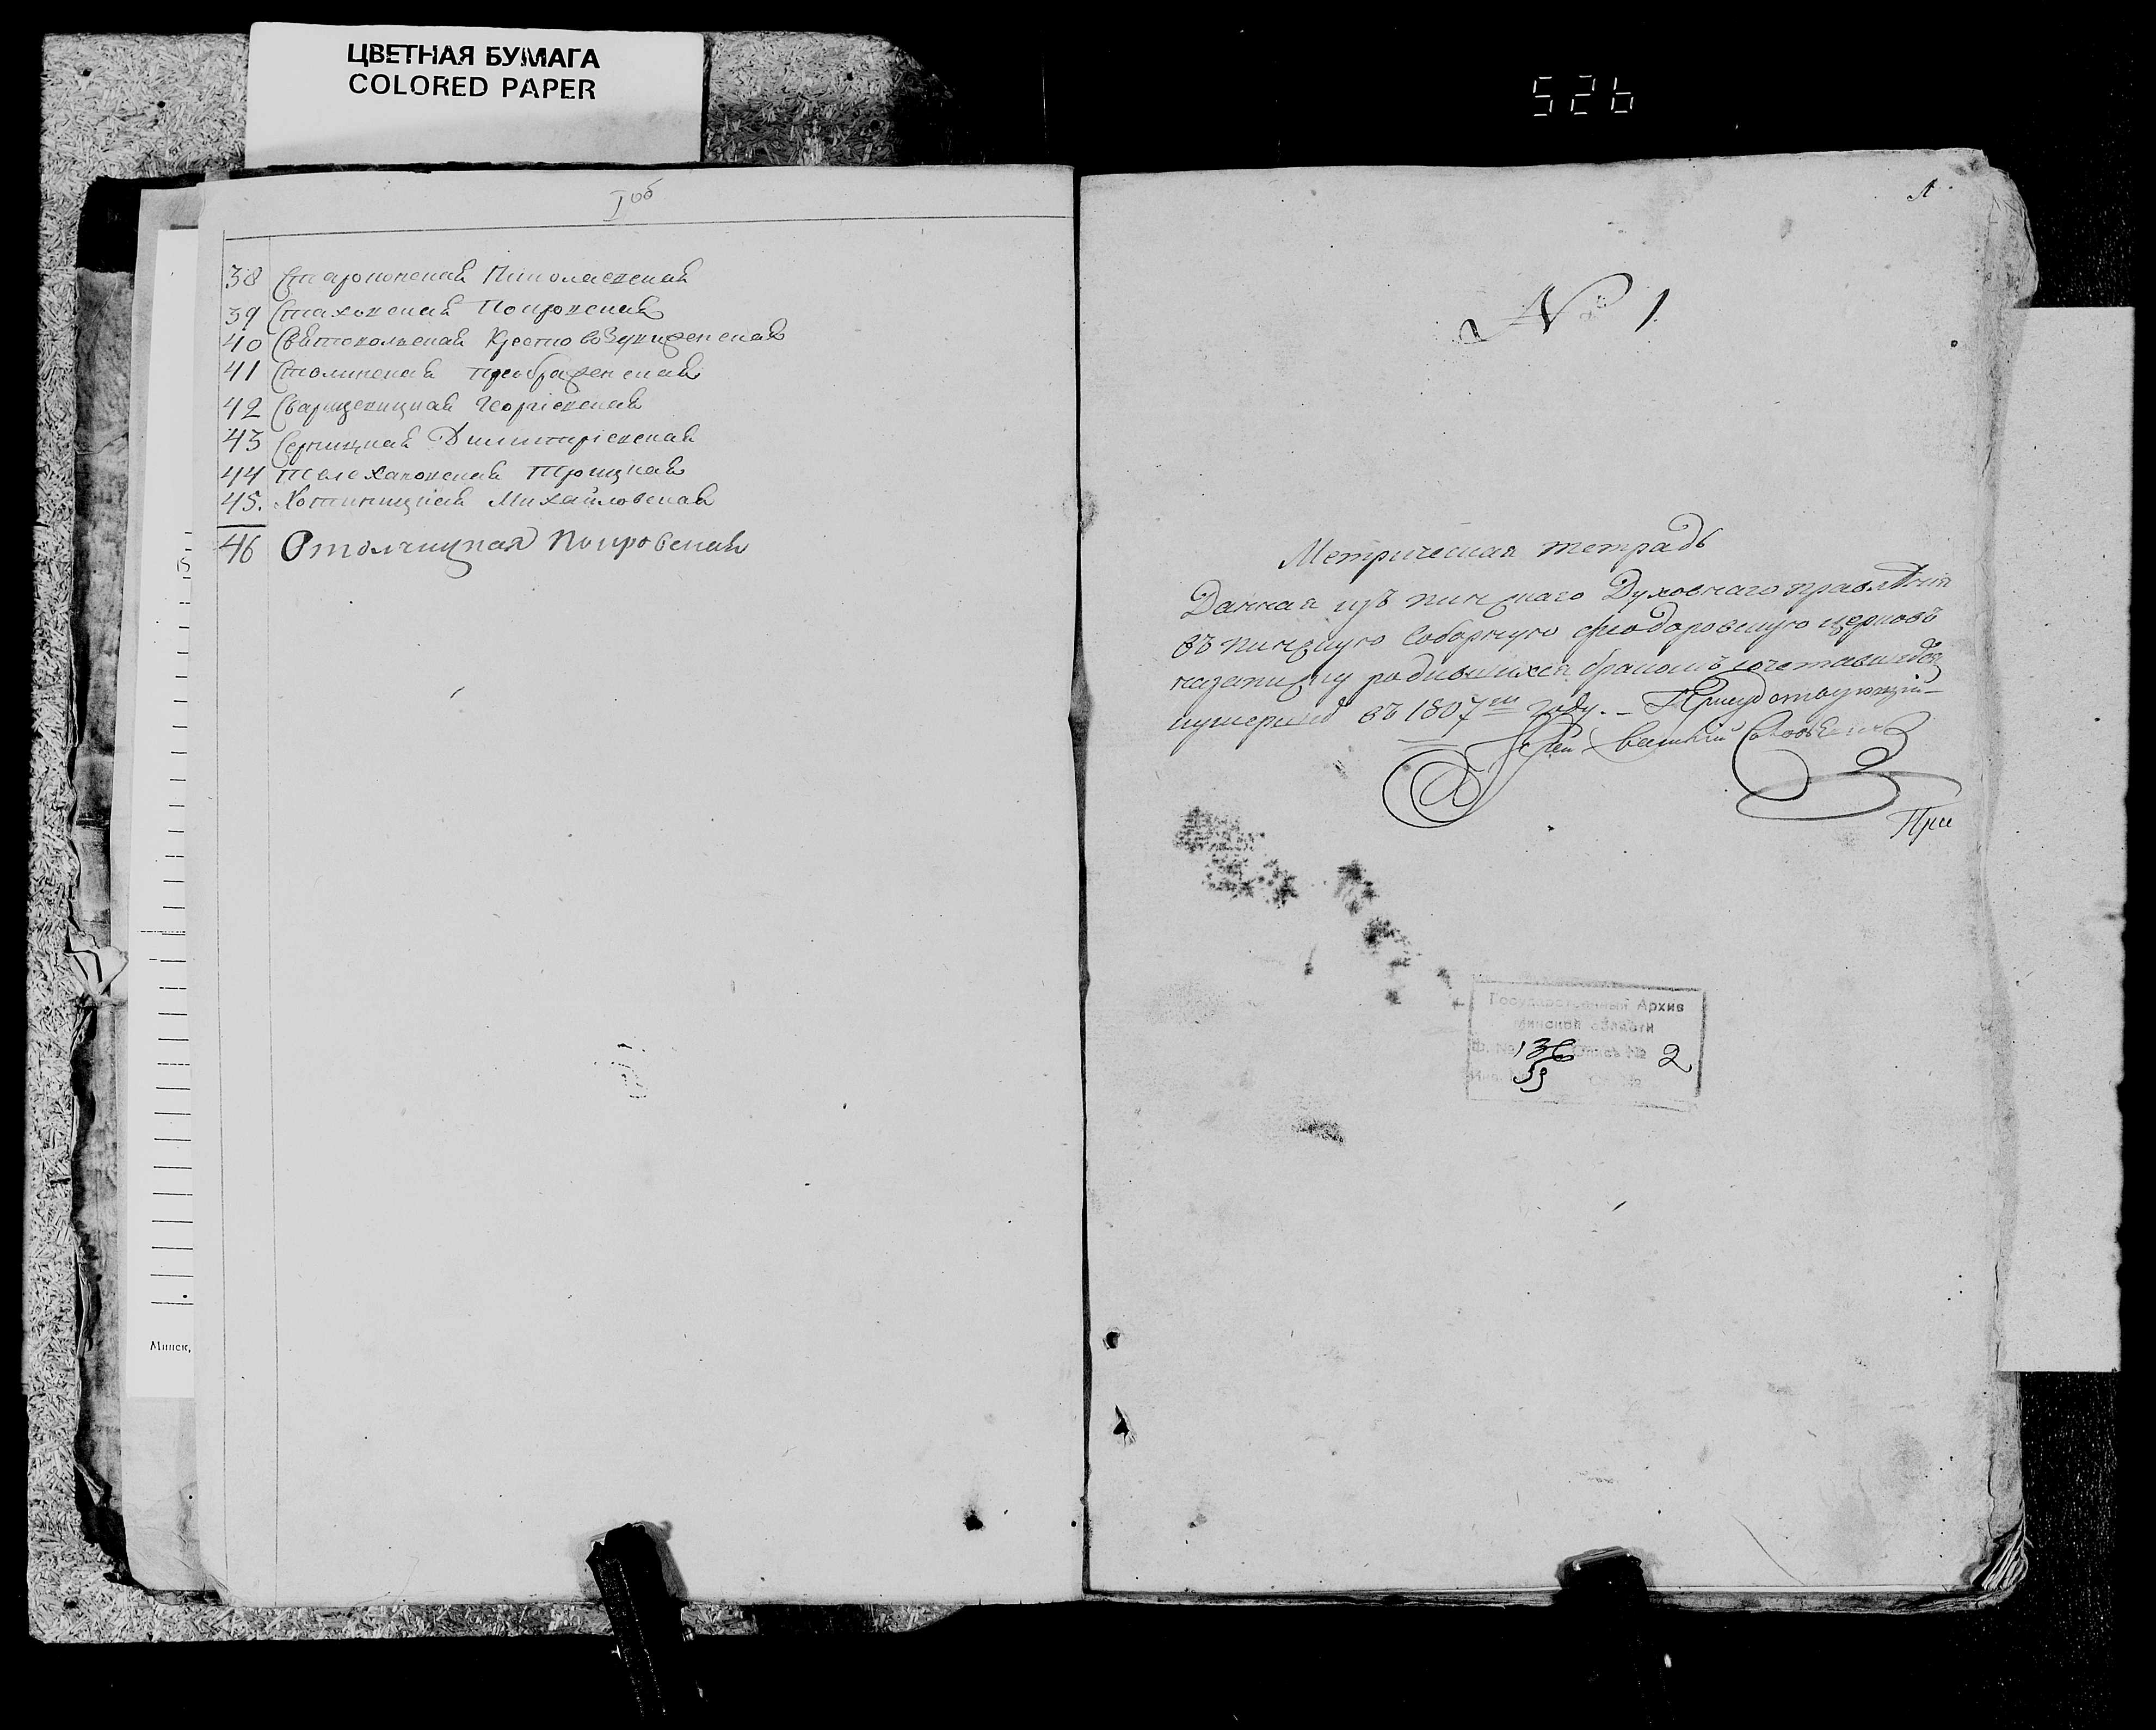 ЦВЕТНАЯ БУМАГА
COLORED PAPER
526
I об
38 Старконская Николаевская
39 Стаховская Покровская
40 Святовольская Крестовоздвиженская
41 Столинская Преображенская
42 Сварицевицкая Георгіевская
43 Серницкая Димитріевская
44 Телеханская Троицкая
45. Хотиницкая Михайловская
46 Отолчицкая Покровская
Минск,
№ 1
Метрическая тетрадь
Данная изъ пинскаго Духовнаго правленія
въ пинскую Соборную феодоровскую церковь
на записку родившихся бракомъ сочетавшихся
и умершихъ въ 1807 м году. – Присудствующій
При
Государственный Архив
Минской области
Ф. № 136 Опись № 2